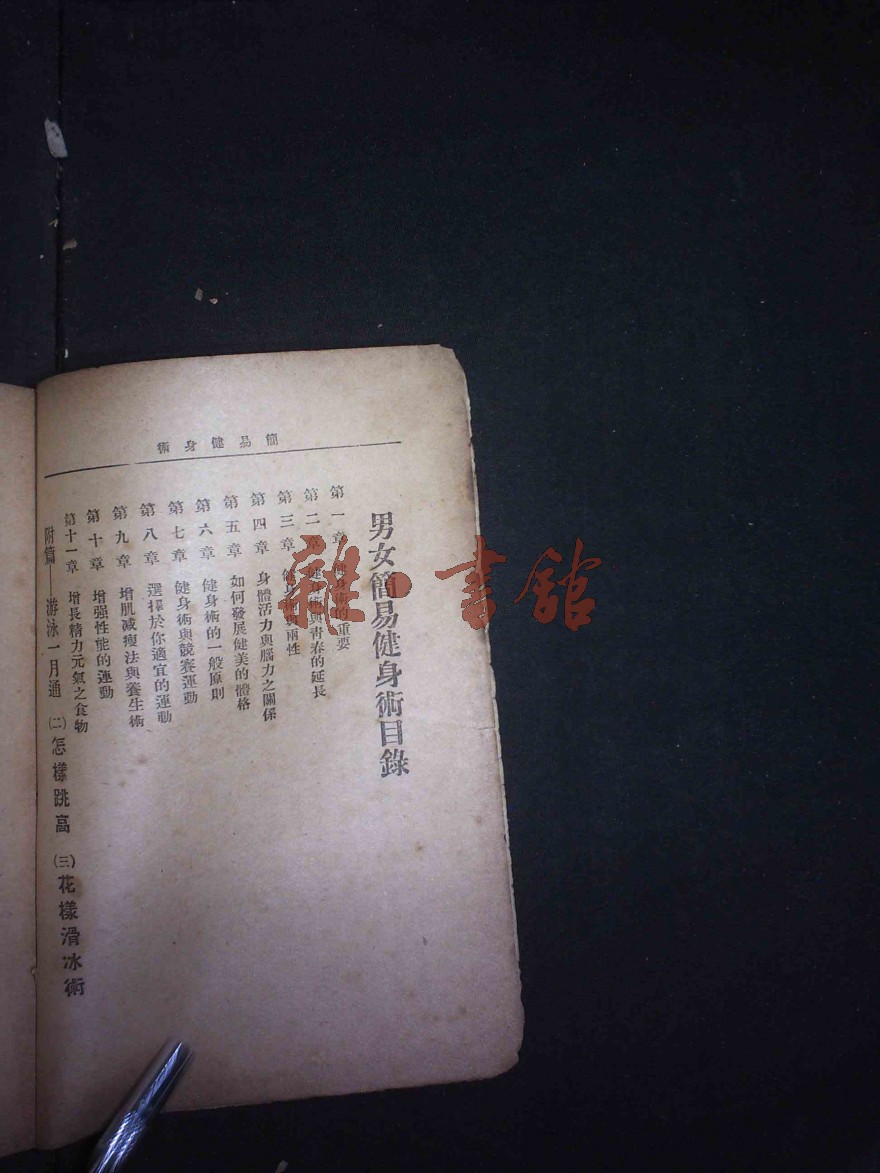 簡易健身術
男女簡易健身術目錄
第一章 健身術的重要
第二章 健身術與青春的延長
第三章 健身術與兩性
第四章 身體活力與腦力之關係
第五章 如何發展健美的體格
第六章 健身術的一般原則
第七章 健身術與競賽運動
第八章 選擇於你適宜的運動
第九章 增肌减瘦法與養生術
第十章 增强性能的運動
第十一章 增長精力元氣之食物
附篇——游泳一月通 (二)怎樣跳高 (三)花樣滑冰術
雜·書館